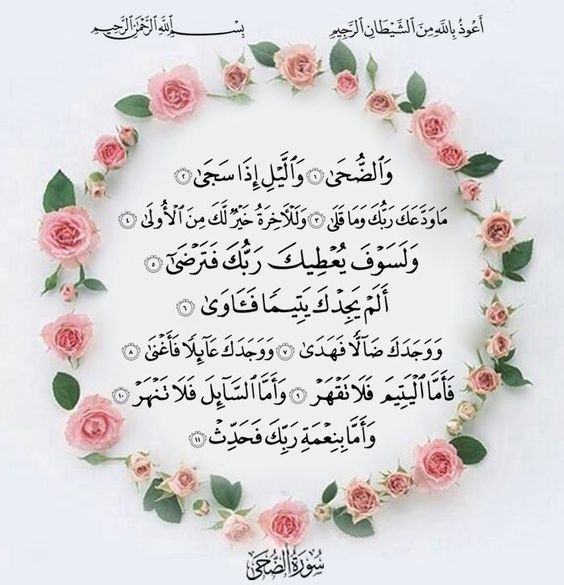 أَعُوذُ بِاللَّهِ مِنَ الشَّيْطَانِ الرَّجِيمِ
بِسْمِ اللَّهِ الرَّحْمَٰنِ الرَّحِيمِ
وَٱلضُّحَىٰ ١ وَٱلَّيْلِ إِذَا سَجَىٰ ٢
مَا وَدَّعَكَ رَبُّكَ وَمَا قَلَىٰ ٣ وَلَلْأٓخِرَةُ خَيْرٌ لَّكَ مِنَ ٱلْأُولَىٰ ٤
وَلَسَوْفَ يُعْطِيكَ رَبُّكَ فَتَرْضَىٰٓ ٥
أَلَمْ يَجِدْكَ يَتِيمًا فَـَٔاوَىٰ ٦
وَوَجَدَكَ ضَآلًّا فَهَدَىٰ ٧ وَوَجَدَكَ عَآئِلًا فَأَغْنَىٰ ٨
فَأَمَّا ٱلْيَتِيمَ فَلَا تَقْهَرْ ٩ وَأَمَّا ٱلسَّآئِلَ فَلَا تَنْهَرْ ١٠
وَأَمَّا بِنِعْمَةِ رَبِّكَ فَحَدِّثْ ١١
سُورَةُ الضُّحَىٰ